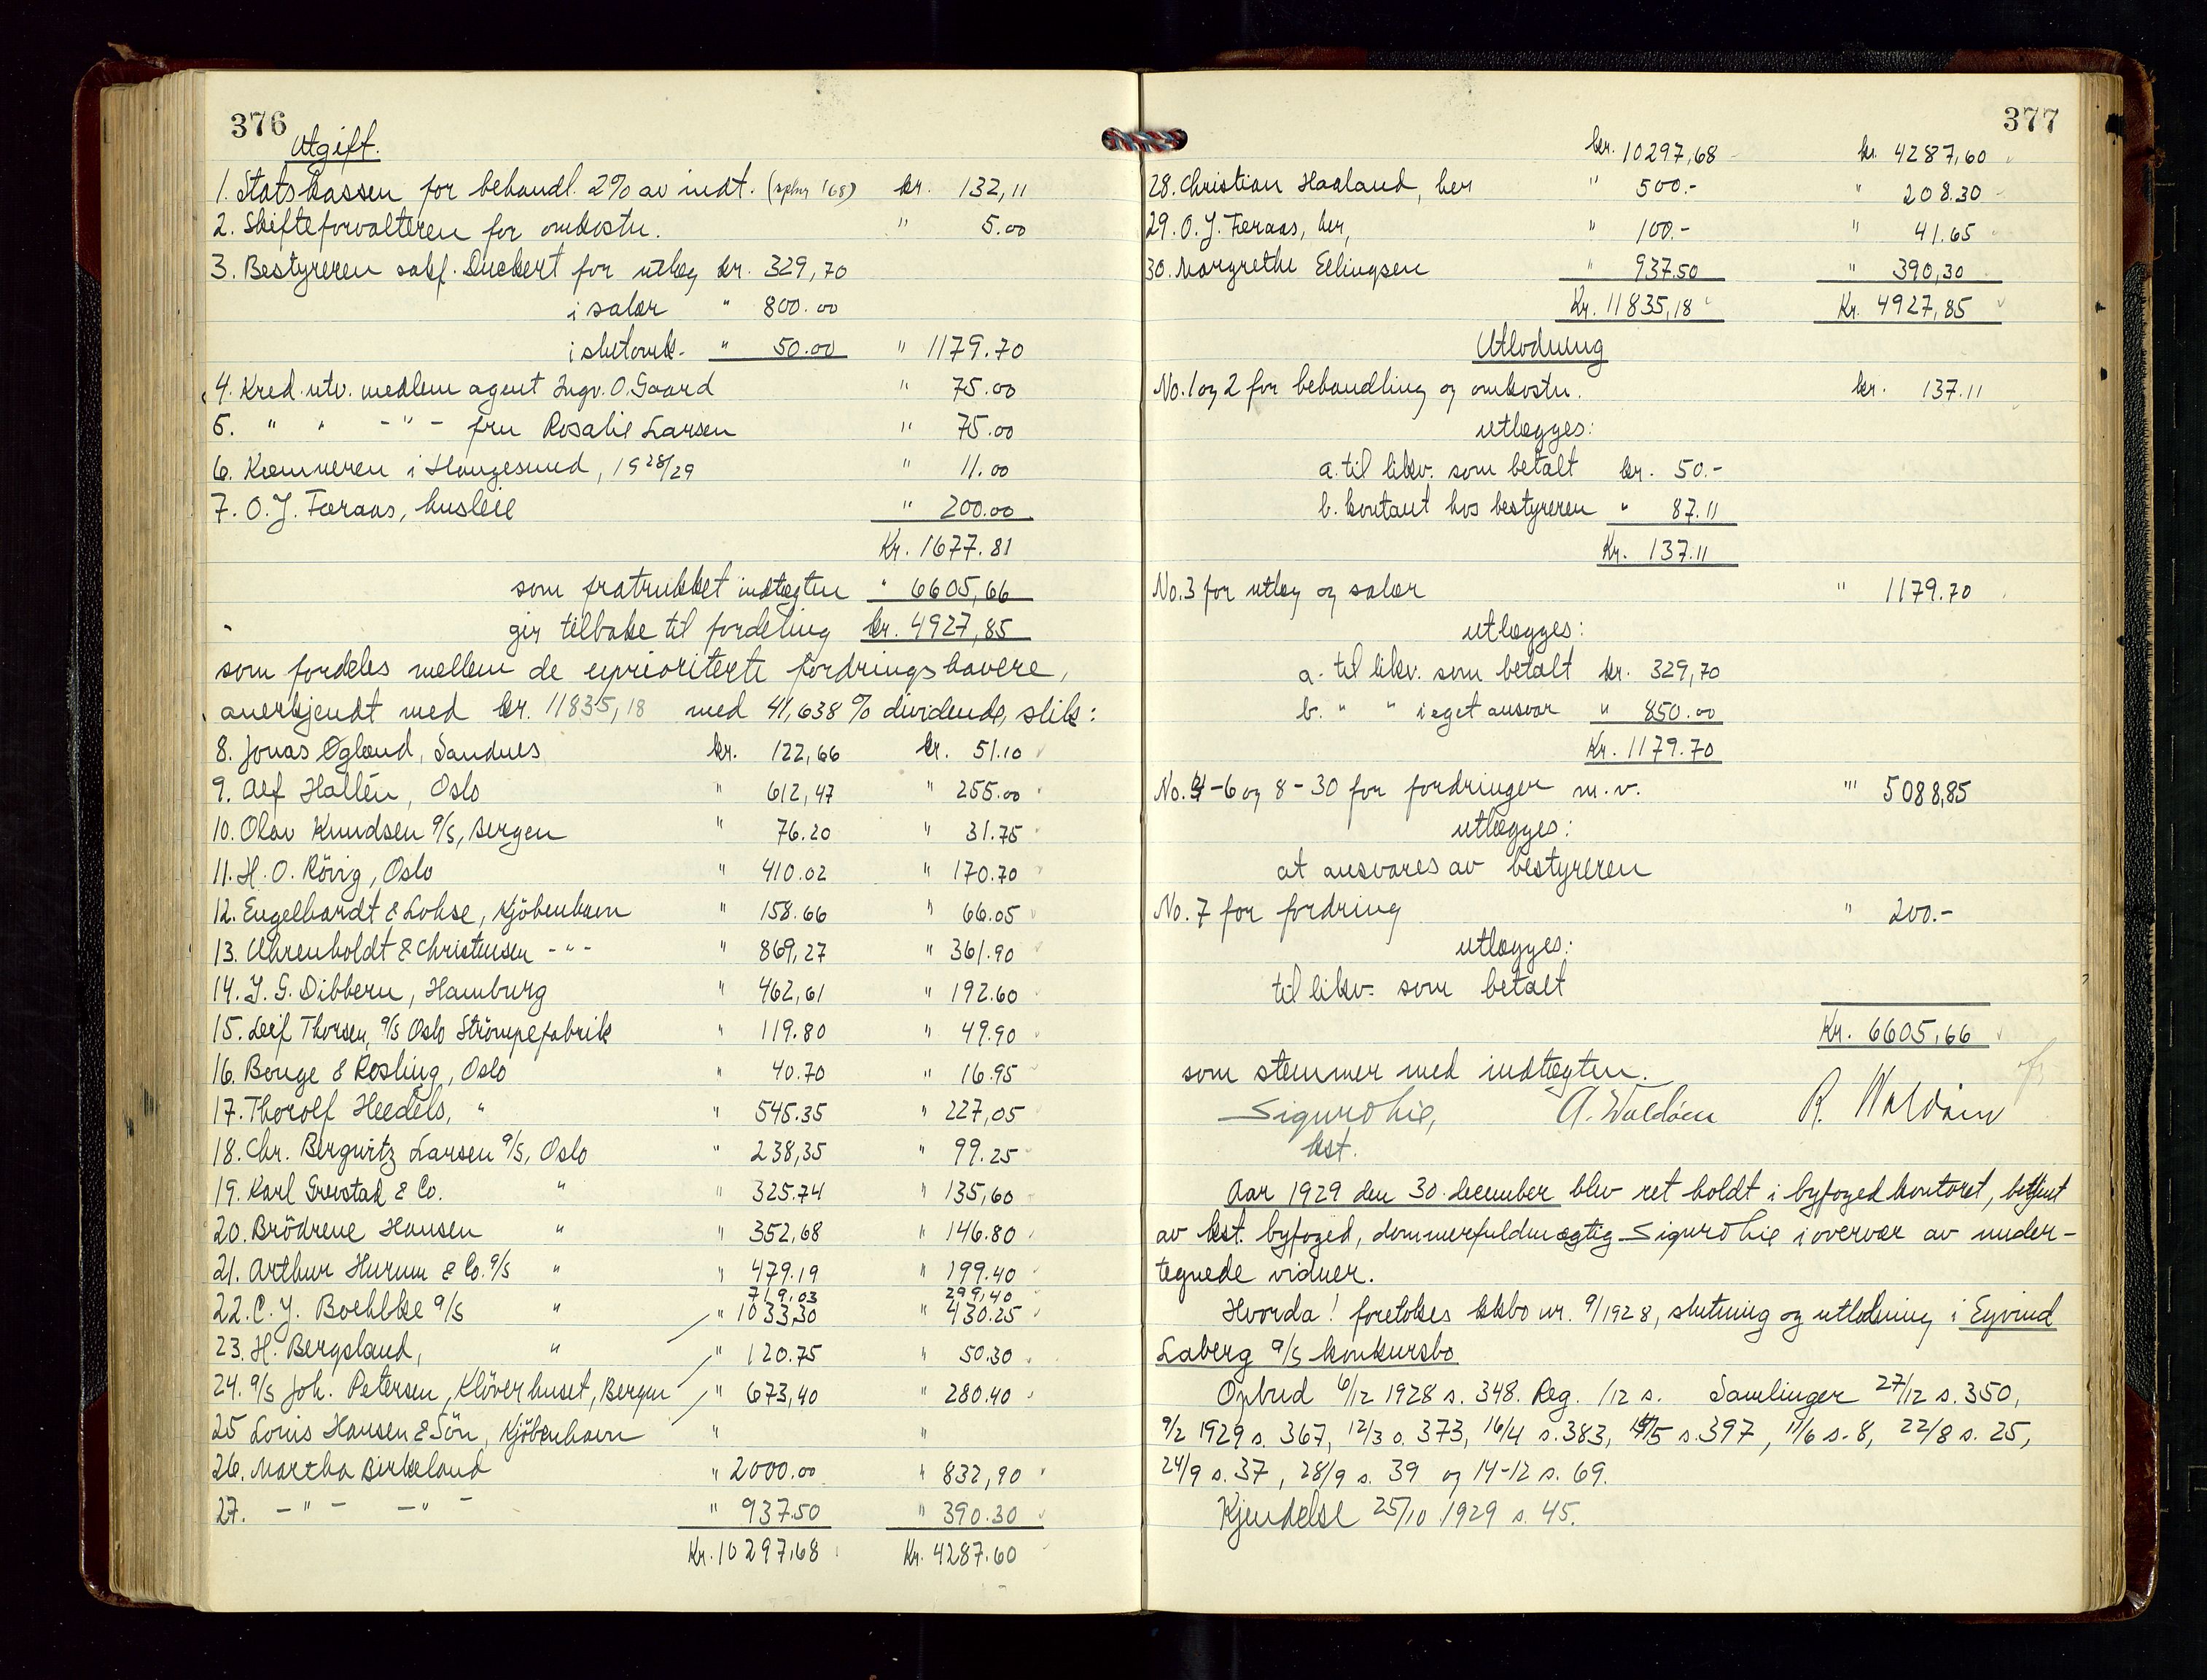 376
Utgift.
1. Statskassen for behandl. 2% av indt. kr. 132,11
2. Skifteforvalteren for omkostn. " 5.00
3. Bestyreren sakf. Duckert for utlæg kr. 329,70
i salær " 800.00
i slutomk. " 50.00 " 1179.70
4. Kred. utv. medlem agent Ingv. O. Gaard " 75.00
5. " " - " - fru Rosalie Larsen " 75.00
6. Kæmneren i Haugesund, 1928/29 " 11.00
7. O. J. Færaas, husleie " 200.00
Kr. 1677.81
som fratrukket indtægten " 6605,66
gir tilbake til fordeling kr. 4927,85
som fordeles mellem de uprioriterte fordringshavere,
anerkjendt med kr. 11835,18 med 41,638 % dividende, slik:
8. Jonas Øglænd, Sandnes kr. 122,66 kr. 51.10
9. Alf Hallén, Oslo " 612,47 " 255.00
10. Olav Knudsen a/s, Bergen " 76.20 " 31.75
11. H. O. Rövig, Oslo " 410.02 " 170.70
12. Engelhardt & Lohse, Kjöbenhavn " 158.66 " 66.05
13. Uhrenholdt & Christensen - " - " 869,27 " 361.90
14. J. G. Dibbern, Hamburg " 462,61 " 192.60
15. Leif Thorsen, a/s Oslo Strömpefabrik " 119.80 " 49.90
16. Bonge & Rosling, Oslo " 40.70 " 16.95
17. Thorolf Heedels, " " 545.35 " 227,05
18. Chr. Bergwitz Larsen a/s, Oslo " 238,35 " 99.25
19. Karl Grevstad & Co. " " 325.74 " 135,60
20. Brödrene Hansen " " 352,68 " 146.80
21. Arthur Hurum & Co. a/s " " 479.19 " 199.40
719.03 299,40
22. C. J. Boehlke a/s " " 1033.30 " 430.25
23. H. Bergsland, " " 120.75 " 50.30
24. a/s Joh. Petersen, Klöverhuset, Bergen " 673,40 " 280.40
25 Louis Hansen & Sön, Kjöbenhavn " "
26. Martha Birkeland " 2000.00 " 832,90
27. - " - - " - " 937.50 " 390.30
Kr. 10297,68 Kr. 4287.60
377
kr. 10297,68 kr. 4287,60
28. Christian Haaland, her " 500.- " 208.30
29. O. J. Færaas, her, " 100.- " 41.65
30. Margrethe Ellingsen " 937.50 " 390,30
Kr. 11835,18 Kr. 4927,85
Utlodning
No. 1 og 2 for behandling og omkostn. kr. 137.11
utlægges:
a. til likv. som betalt kr. 50.-
b. kontant hos bestyreren " 87.11
Kr. 137.11
No. 3 for utlæg og salær " 1179.70
utlægges:
a. til likv. som betalt kr. 329,70
b. " " i eget ansvar " 850.00
Kr. 1179.70
No. 4-6 og 8-30 for fordringer m.v. " 5088,85
utlægges:
at ansvares av bestyreren
No. 7 for fordring " 200.-
utlægges:
til likv. som betalt
Kr. 6605,66
som stemmer med indtægten.
Sigurd Lie, A. Waldam R. Waldam
kst.
Aar 1929 den 30. december blev ret holdt i byfogedkontoret, betjent
av kst. byfoged, dommerfuldmægtig Sigurd Lie i overvær av under-
tegnede vidner.
Hvorda! foretokes kkbo nr. 9/1928, slutning og utlodning i Eyvind
Laberg a/s konkursbo
Opbud 6/12 1928 s. 348. Reg. 1/12 s. Samlinger 27/12 s. 350,
9/2 1929 s. 367, 12/3 s. 373, 16/4 s. 383, 14/5 s. 397, 11/6 s. 8, 22/8 s. 25,
24/9 s. 37, 28/9 s. 39 og 14-12 s. 69.
Kjendelse 25/10 1929 s. 45.